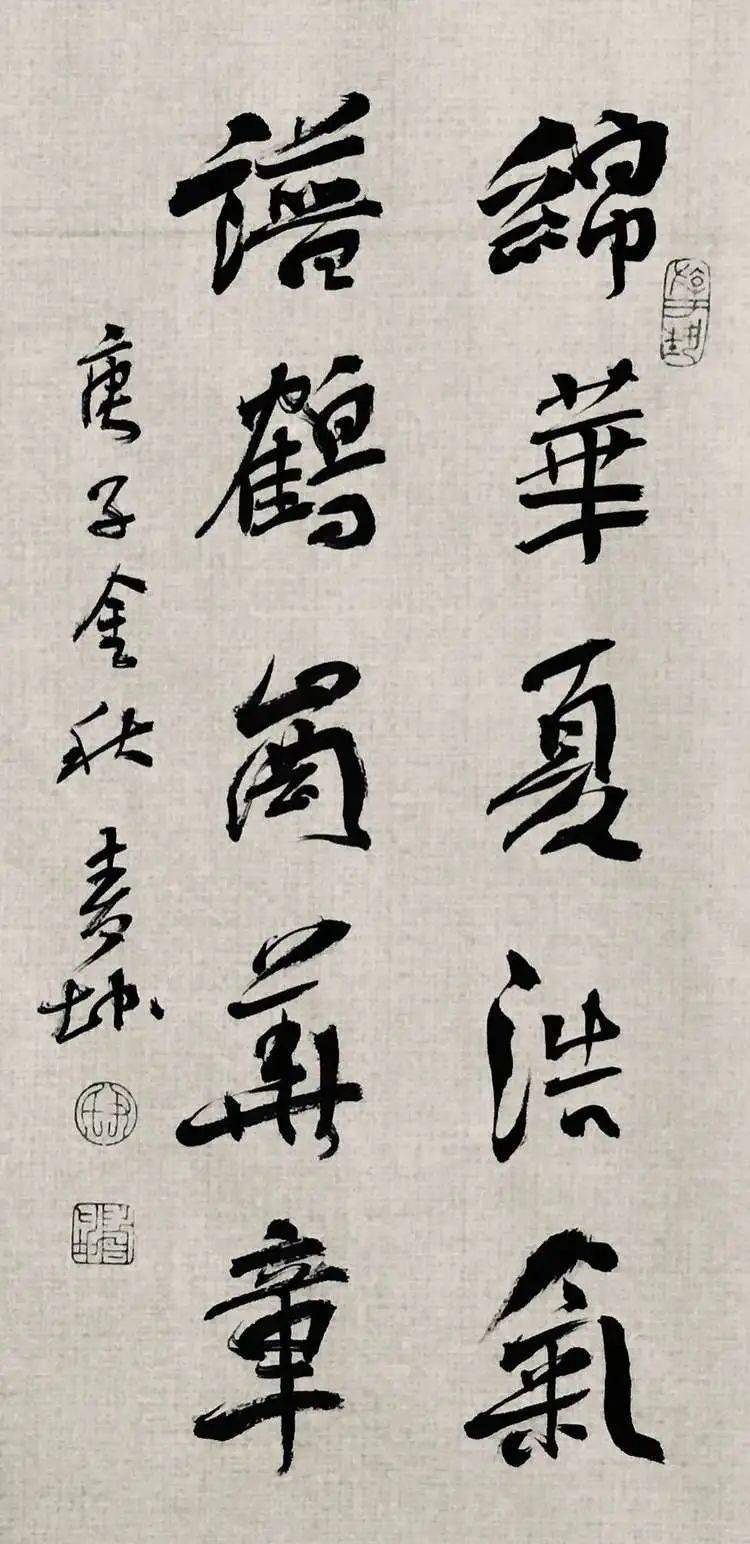 綿華夏浩氣
譜鶴崗華章
庚子金秋春坤